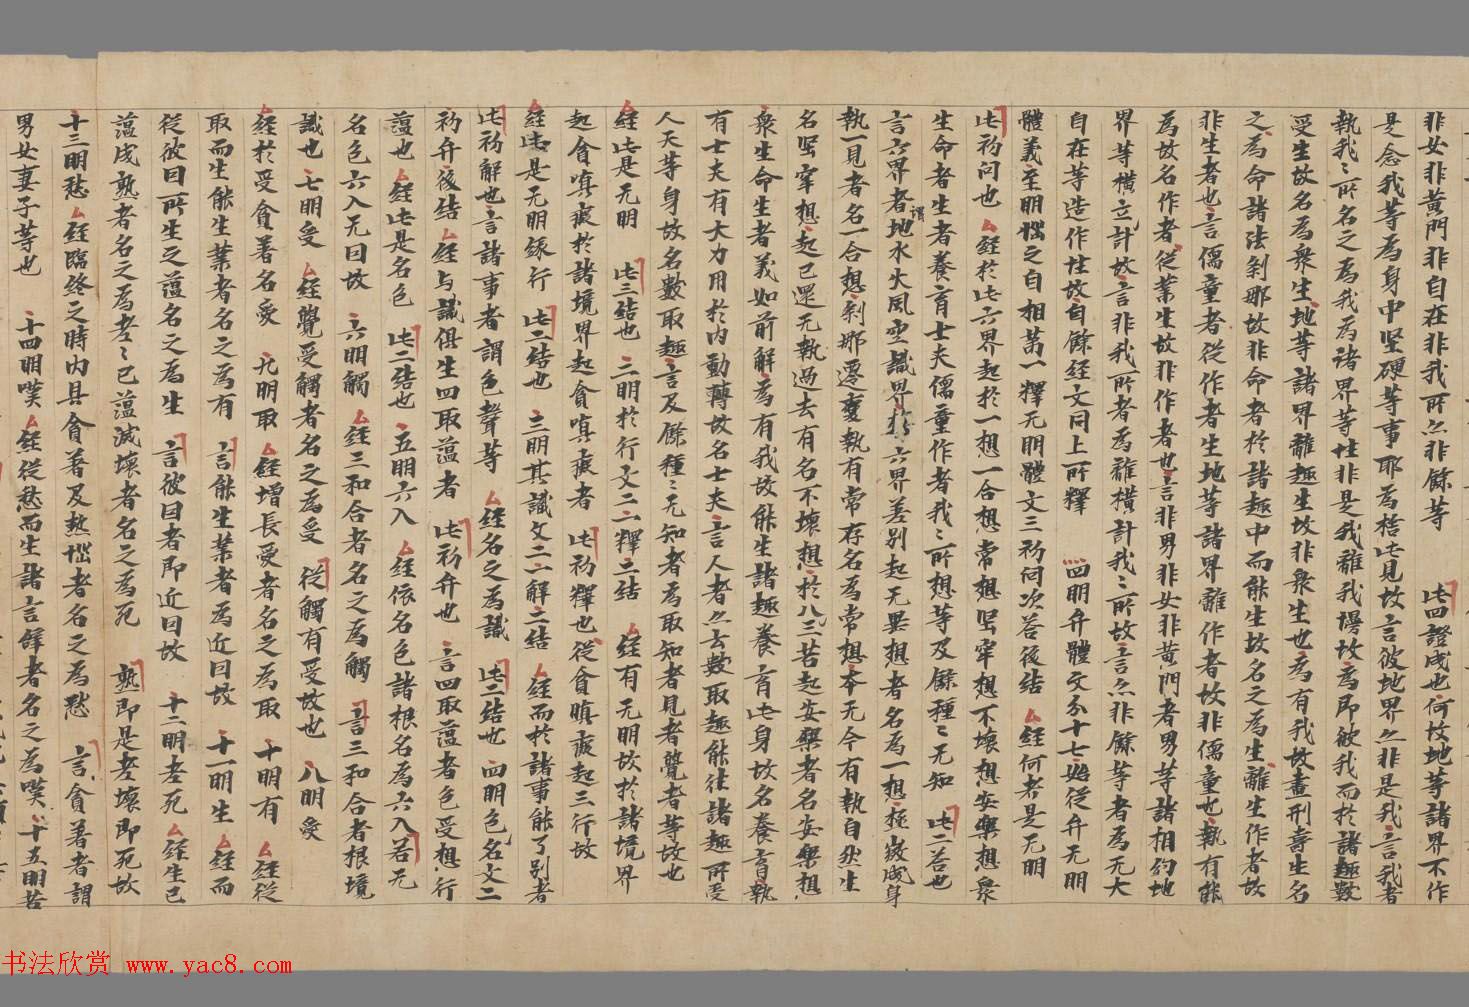 非女非黄門非自在非我所亦非餘等　此四證成也何故地等諸界不作
是念我等為身中堅硬等事耶為捨此見故言彼地界亦非是我言我者
執我々所名之為我為諸界等性非是我離我慢故為即彼我而於諸趣數
受生故名為衆生地等諸界離趣生故非衆生也為有我故盡刑壽生名
之為命諸法剎那故非命者於諸趣中而能生故名之為生離生作者故
非生者也言儒童者從作者生地等諸界離作者故非儒童也執有能
為故名作者從業生故非作者也言非男非女非黄門者男等諸相約地
界等橫立計故言非我所者為離橫計我々所故言亦非餘等者為无大
自在等造作性故自餘經文同上所釋　四明弁體文分十七始從弁无明
體義至明惱之自相苐一釋无明體文三初问次荅後結　經何者是无明
此初问也　經於此六界起於一想一合想常想堅牢想不壞想安樂想衆
生命者生者養育士夫儒童作者我々所想等及餘種々无知　此二荅也
言六界者謂地水火風空識界於六界差别起无異想者名為一想極嶶成身
執一見者名一合想剎那遷變執有常存名為常想本无今有執自然生
名堅牢想起已還无執過去有名不壞想於八三苦起安樂者名安樂想
衆生命生者義如前解為有我故能生諸趣養育此身故名養育執
有士夫有大力用於内動轉故名士夫言人者亦云數取趣能往諸趣所受
人天等身故名數取趣言及餘種々无知者為取知者見者覺者等故也
經此是无明　此三结也　二明於行文二一釋二結　經有无明故於諸境界
起貪嗔癡於諸境界起貪嗔癡者　此初釋也從貪瞋癡起三行故
經此是无明緣行　此二结也　三明其識文二一解二结　經而於諸事能了别者
此初解也言諸事者謂色聲等　經名之為識　此二结也　四明色名文二
初弁後结　經与識俱生四取蕴者　此初弁也　言四取蕴者色受想行
蕴也　經此是名色　此二结也　五明六入　經依名色諸根名為六入若无
名色六入无曰故　六明觸　經三和合者名之為觸　言三和合者根境
識也　七明受　經覺受觸者名之為受　從觸有受故也　八明愛
經於受貪著名愛　九明取　經增長愛者名之為取　十明有　經從
取而生能生業者名之為有　言能生業者為近曰故　十一明生　經而
從彼曰所生之蕴名之為生　言彼曰者即近曰故　十二明老死　經生已
蕴成熟者名之為老々已蕴滅壞者名之為死　熟即是老壞即死故
十三明愁　經臨終之時内具貪著及熱惱者名之為愁　言貪著者謂
男女妻子等也　十四明嘆　經從愁而生諸言辭者名之為嘆　十五明苦
书法欣赏 www.yac8.com